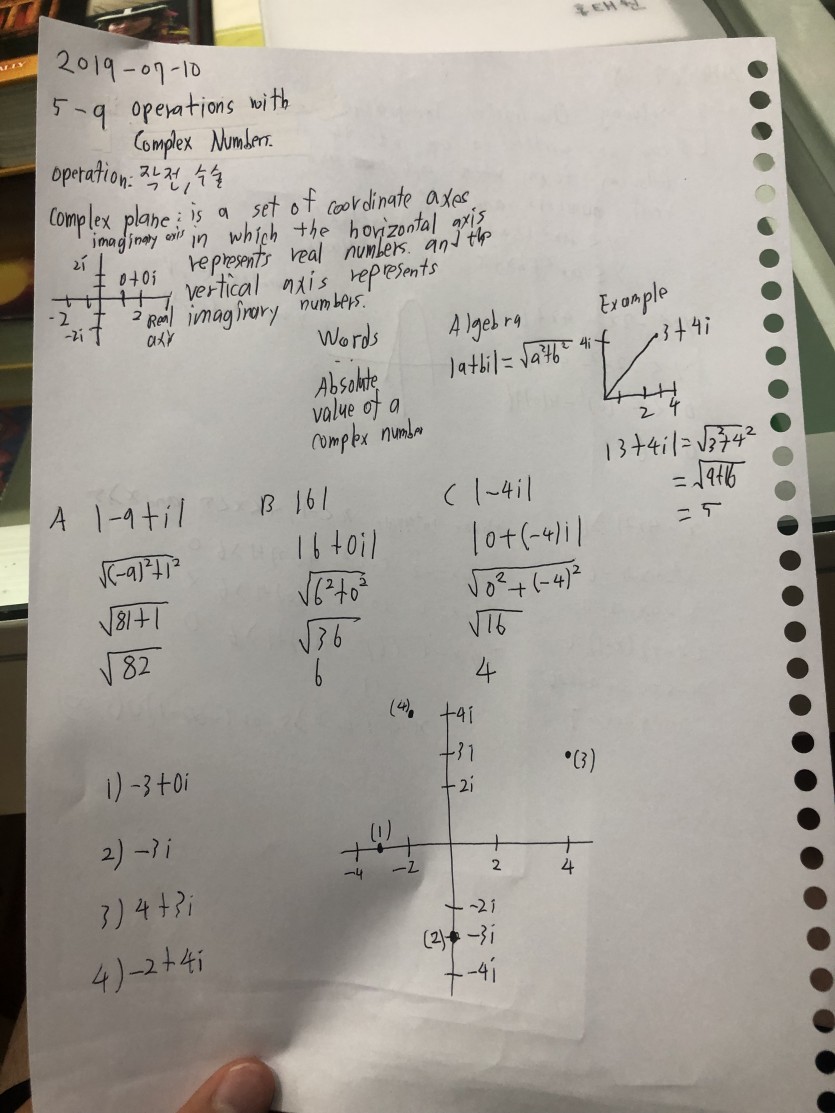 홍태원
2019-07-10
5-9 operations with
Complex Numbers.
operation: 작전, 수술
Complex plane: is a set of coordinate axes
in which the horizontal axis
represents real numbers. and the
vertical axis represents
imaginary numbers.
imaginary axis
2i
0+0i
-2
2
Real
axis
-2i
Words
Absolute
value of a
complex number
Algebra
|a+bi|=√a²+b²
Example
4i
3+4i
2 4
|3+4i|=√3²+4²
=√9+16
=5
A |-9+i|
√(-9)²+1²
√81+1
√82
B |6|
|6+0i|
√6²+0²
√36
6
C |-4i|
|0+(-4)i|
√0²+(-4)²
√16
4
1) -3+0i
2) -3i
3) 4+3i
4) -2+4i
(4)
4i
3i
(3)
2i
(1)
-4 -2 2 4
-2i
(2) -3i
-4i